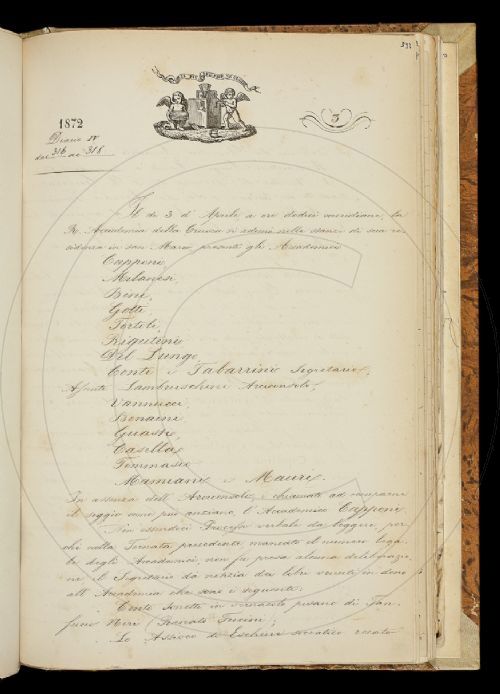 331
1872
Diario IV
da 316 a 318.
3
Il dì 3 d'Aprile a ore dodici meridiane, la
R. Accademia della Crusca si adunò nelle stanze di sua re-
sidenza in San Marco presenti gli Accademici
Capponi,
Milanesi,
Bini,
Gotti,
Tortoli,
Rigutini,
Del Lungo,
Conti e Tabarrini Segretario,
Assenti Lambruschini Arciconsolo,
Vannucci,
Bonaini,
Guasti,
Casella,
Tommaseo
Mamiani e Mauri.
In assenza dell'Arciconsolo, è chiamato ad occuparne
il seggio come più anziano, l'Accademico Capponi.
Non essendoci Processo verbale da leggere, per-
chè nella Tornata precedente mancato il numero lega-
le degli Accademici, non fu presa alcuna deliberazio-
ne il Segretario dà notizia dei libri venuti in dono
all'Accademia che sono i seguenti:
Cento Sonetti in vernacolo pisano di Tan-
fucio Neri (Renato Fucini;
Lo Assioco di Eschine socratico recato